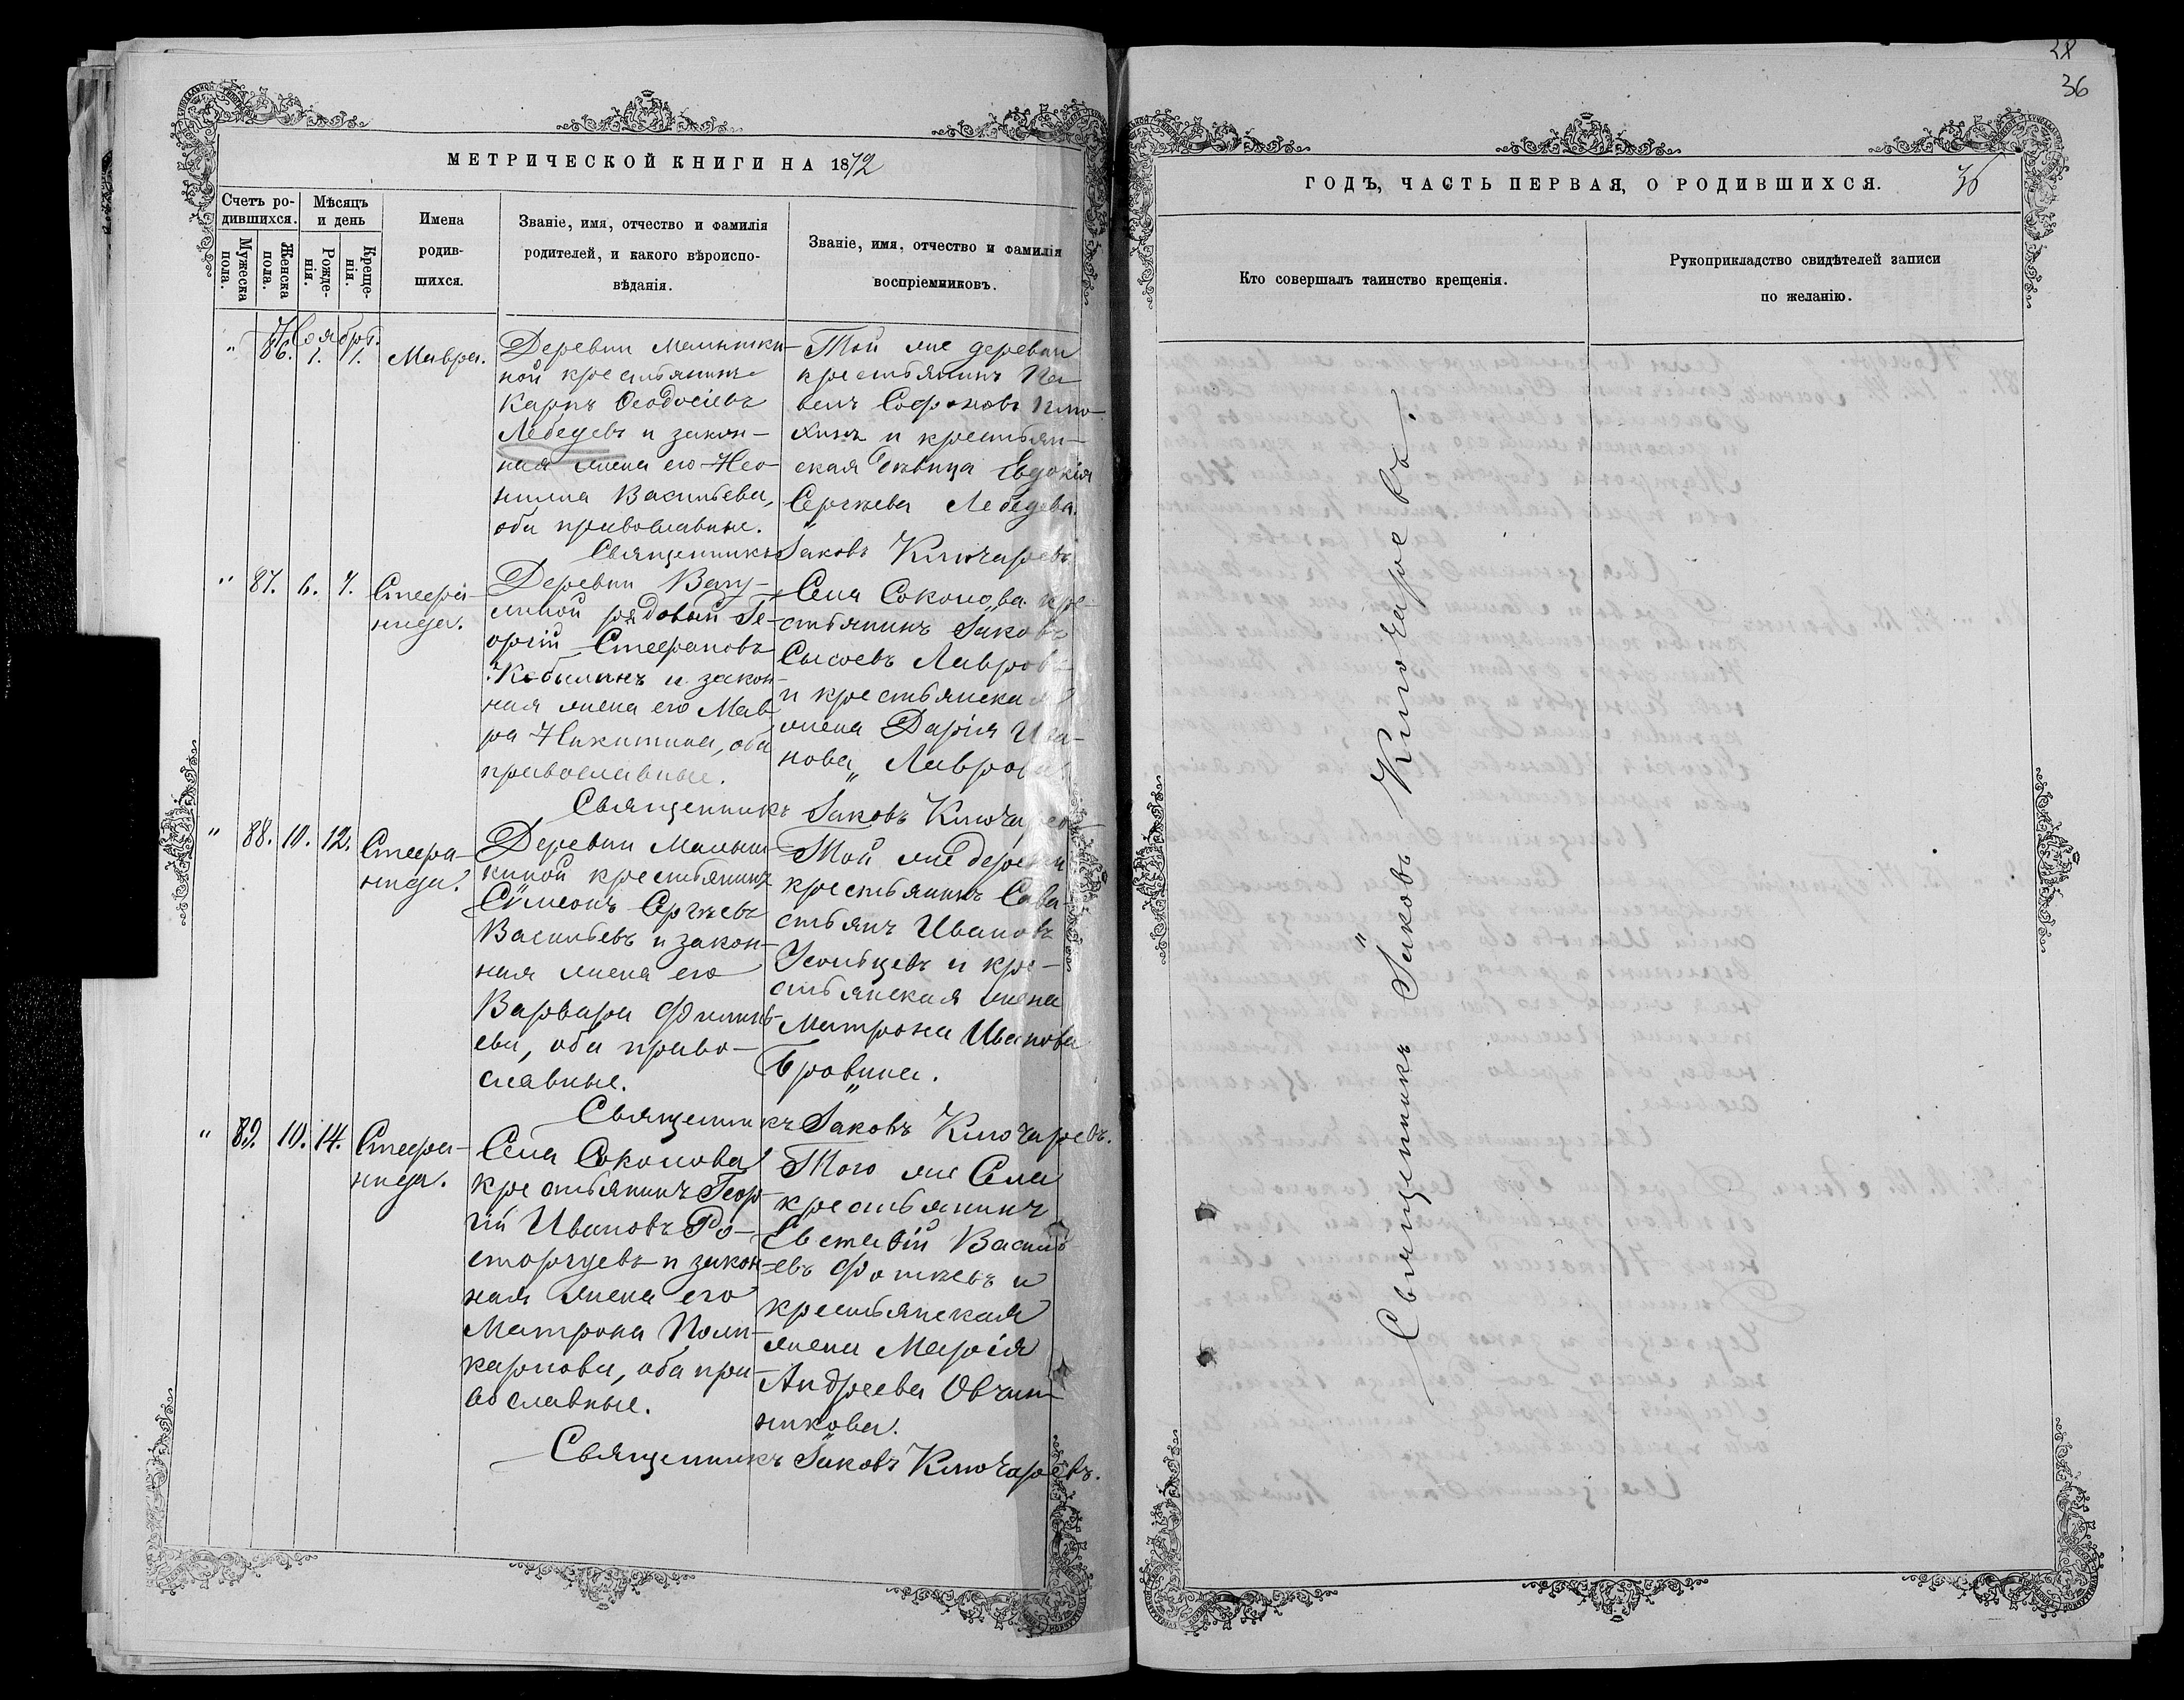 МЕТРИЧЕСКОЙ КНИГИ НА 1872
Счетъ ро-
дившихся.
Мѣсяцъ
и день
Мужеска
пола.
Женска
пола.
Рожде-
нія.
Креще-
нія.
Имена
родив-
шихся.
Званіе, имя, отчество и фамилія
родителей, и какого вѣроиспо-
вѣданія.
Званіе, имя, отчество и фамилія
воспріемниковъ.
Ноября.
" 86. 1. 1. Мавра.
Деревни Малышки-
ной крестьянинъ
Карпъ Ѳеодосіевъ
Лебедевъ и закон-
ная жена его Нео-
нила Васильева,
оба православные.
Той же деревни
крестьянинъ Па-
велъ Софоновъ
и крестьян-
ская дѣвица Евдокія
Сергѣева Лебедева.
Священникъ Іаковъ Ключаревъ
" 87. 6. 7. Стефа-
нида.
Деревни
рядовый Ге-
оргій Стефановъ
Кобылинъ и закон-
ная жена его Мав-
ра Никитина, оба
православные.
Села Соколова кре-
стьянинъ Іаковъ
Сысоевъ Лавровъ
и крестьянская
жена Дарія Ива-
нова Лаврова
Священникъ Іаковъ Ключарев
" 88. 10. 12. Стефа-
нида.
Деревни Малыш-
киной крестьянинъ
Сѵмеонъ Сергѣевъ
Васильевъ и закон-
ная жена его
Варвара Филипь-
ева, оба право-
славные.
Той же деревни
крестьянинъ Сава-
стьянъ Ивановъ
Усольцевъ и кре-
стьянская жена
Матрона Иванова
Бровина.
Священникъ Іаковъ Ключаревъ.
" 89. 10. 14. Стефа-
нида.
Села Соколова
крестьянинъ Геор-
гій Ивановъ Ро-
сторгуевъ и закон-
ная жена его
Матрона Поли-
карпова, оба пра-
вославные.
Того же Села
крестьянинъ
Евстафій Василь-
евъ Фотѣевъ и
крестьянская
жена Марія
Андреева Овчин-
никова.
Священникъ Іаковъ Ключаревъ.
28
36
ГОДЪ, ЧАСТЬ ПЕРВАЯ, О РОДИВШИХСЯ.
36
Кто совершалъ таинство крещенія.
Рукоприкладство свидѣтелей записи
по желанію.
Священникъ Іаковъ Ключаревъ.